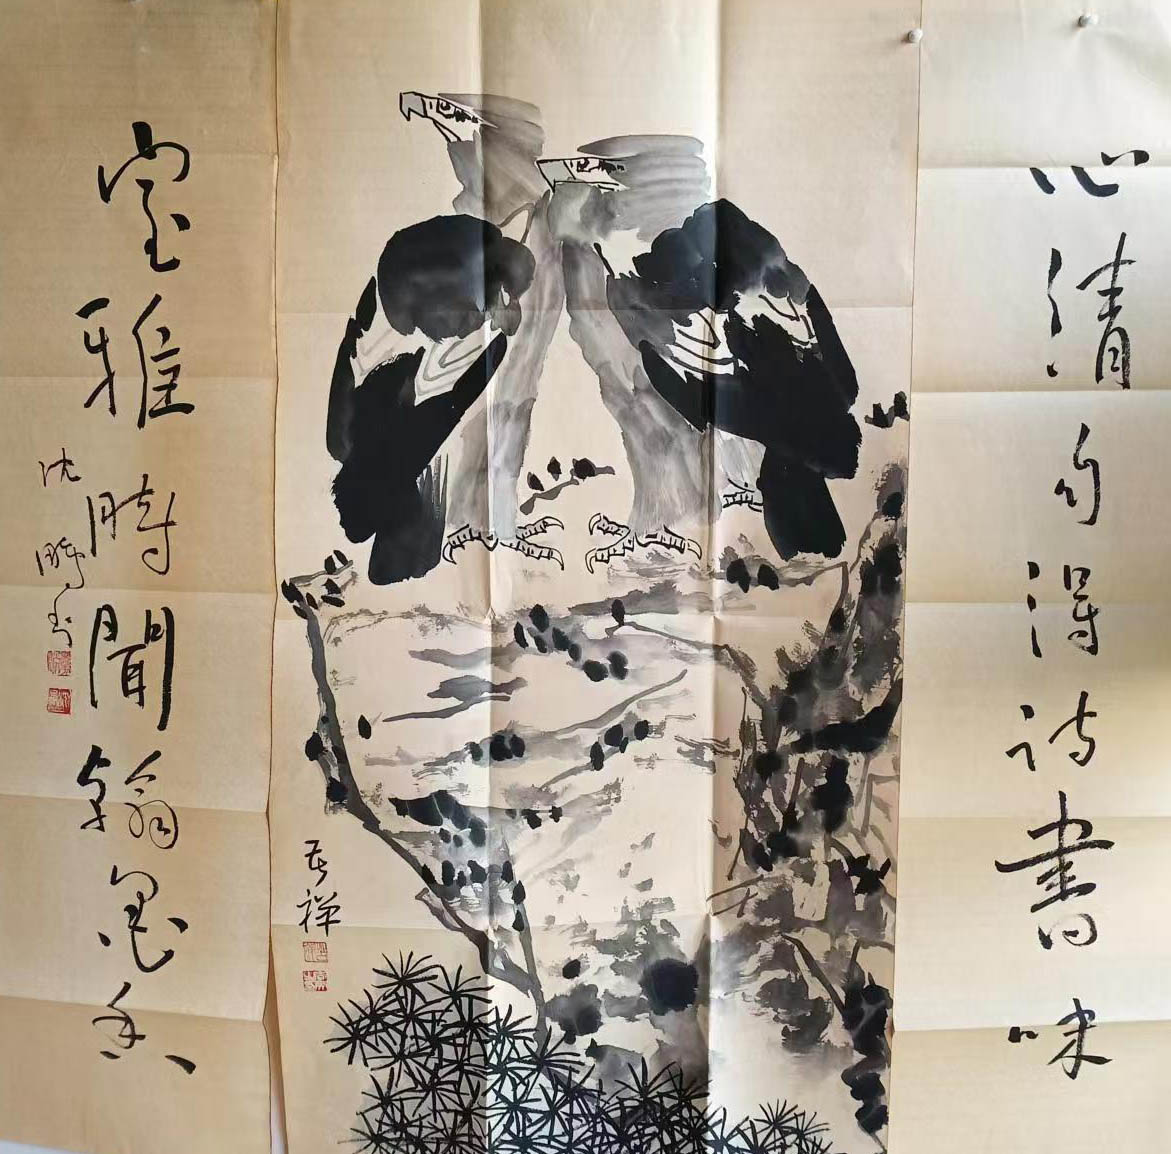 心清自得詩書味
室雅時聞翰墨香
沈鵬书
苦禅